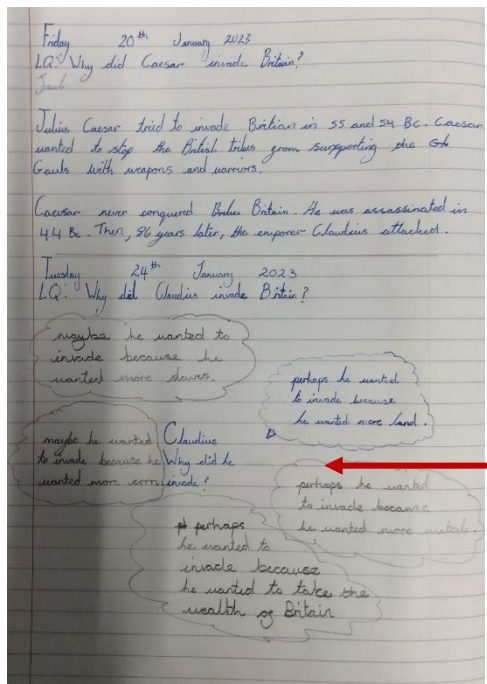 Friday 20th January 2023
LQ: Why did Caesar invade Britain?
Julius Caesar tried to invade Biritian in 55 and 54 BC. Caesar
wanted to stop the British tribes grom supporting the
Gauls with weapons and warriors.
Caeusar never conquered Britain. He was assassinated in
44 Bc. Then, 96 years later, the emporer Claudius attacked.
Tuesday 24th January 2023
LQ: Why did Claudius invade Britain?
maybe he wanted to
invade because he
wanted more slaves.
perhaps he wanted
to invade because
he wanted more land.
maybe he wanted
to invade because he
wanted more corn
Claudius
Why did he
invade?
perhaps he wanted
to invade because
he wanted more metals.
perhaps
he wanted to
invade because
he wanted to take the
wealth og Britain